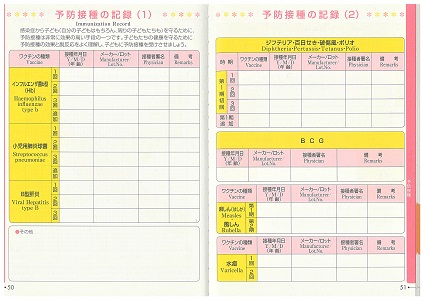 予防接種の記録（1）
Immunization Record
感染症から子ども（自分の子どもはもちろん、周りの子どもたちも）を守るために、
予防接種は非常に効果の高い手段の一つです。子どもたちの健康を守るために、
予防接種の効果と副反応をよく理解し、子どもに予防接種を受けさせましょう。
ワクチンの種類 接種年月日 メーカー/ロット 接種者署名 備考
Vaccine Y/M/D (年/月/日) Manufacturer/Lot.No. Physician Remarks
インフルエンザ菌b型
(Hib)
Haemophilus
influenzae
type b
1回
2回
3回
追加
小児用肺炎球菌
Streptococcus
pneumoniae
1回
2回
3回
追加
B型肝炎
Viral Hepatitis
type B
1回
2回
3回
●その他
50
予防接種の記録（2）
ジフテリア・百日せき・破傷風・ポリオ
Diphtheria・Pertussis・Tetanus・Polio
時期 ワクチンの種類 接種年月日 メーカー/ロット 接種者署名 備考
Vaccine Y/M/D (年/月/日) Manufacturer/Lot.No. Physician Remarks
第1期初回
1回
2回
3回
第1期追加
BCG
接種年月日 メーカー/ロット 接種者署名 備考
Y/M/D (年/月/日) Manufacturer/Lot.No. Physician Remarks
ワクチンの種類 接種年月日 メーカー/ロット 接種者署名 備考
Vaccine Y/M/D (年/月/日) Manufacturer/Lot.No. Physician Remarks
麻しん(はしか)
Measles
風しん
Rubella
第1期
第2期
ワクチンの種類 接種年月日 メーカー/ロット 接種者署名 備考
Vaccine Y/M/D (年/月/日) Manufacturer/Lot.No. Physician Remarks
水痘
Varicella
1回
2回
51